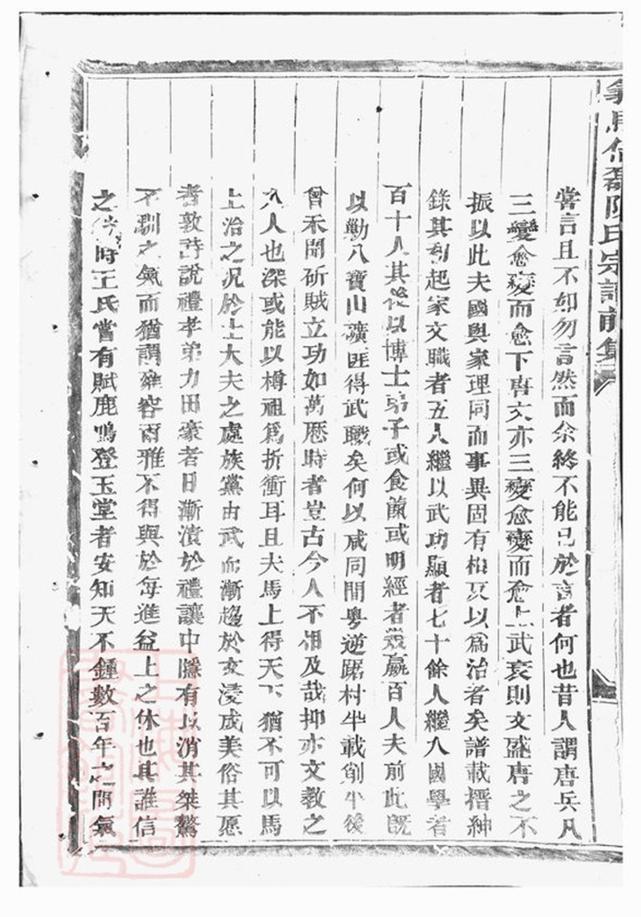 陳氏宗譜前集
嘗言且不如勿言然而余終不能已於言者何也昔人謂唐兵凡
三變愈變而愈下唐文亦三變愈變而愈上武衰則文盛唐之不
振以此夫國與家理同而事異固有相反以為治者矣譜載搢紳
錄其初起家文職者五人繼以武功顯者七十餘人繼入國學者
百十人其後以博士弟子或食餼或明經者幾贏百人夫前此旣
以勦八寶山礦匪得武職矣何以咸同間粤逆踞村半載創平後
曾未聞斫賊立功如萬曆時者豈古今人不相及哉抑亦文教之
入人也深或能以樽俎為折衝耳且夫馬上得天下猶不可以馬
上治之况於士大夫之處族黨由武而漸趨於文浸成美俗其愿
者敦詩說禮孝弟力田豪者日漸漬於禮讓中隱有以消其桀驁
不馴之氣而猶謂雍容爾雅不得與於每進益上之休也其誰信
之 時王氏嘗有賦鹿鳴登玉堂者安知天不鍾數百年之間氣